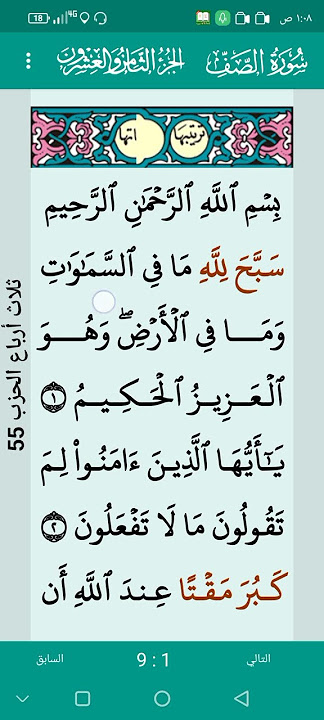 ١:٠٨ ص
4G
18
سُورَةُ الصَّفِّ
الجُزْءُ الثَّامِنُ وَالعِشْرُونَ
ترتيبها
اتها
بِسۡمِ ٱللَّهِ ٱلرَّحۡمَٰنِ ٱلرَّحِيمِ
سَبَّحَ لِلَّهِ مَا فِي ٱلسَّمَٰوَٰتِ
وَمَا فِي ٱلۡأَرۡضِۖ وَهُوَ
ٱلۡعَزِيزُ ٱلۡحَكِيمُ ١
يَٰٓأَيُّهَا ٱلَّذِينَ ءَامَنُواْ لِمَ
تَقُولُونَ مَا لَا تَفۡعَلُونَ ٢
كَبُرَ مَقۡتًا عِندَ ٱللَّهِ أَن
ثلاث أرباع الحزب 55
التالي
9:1
السابق